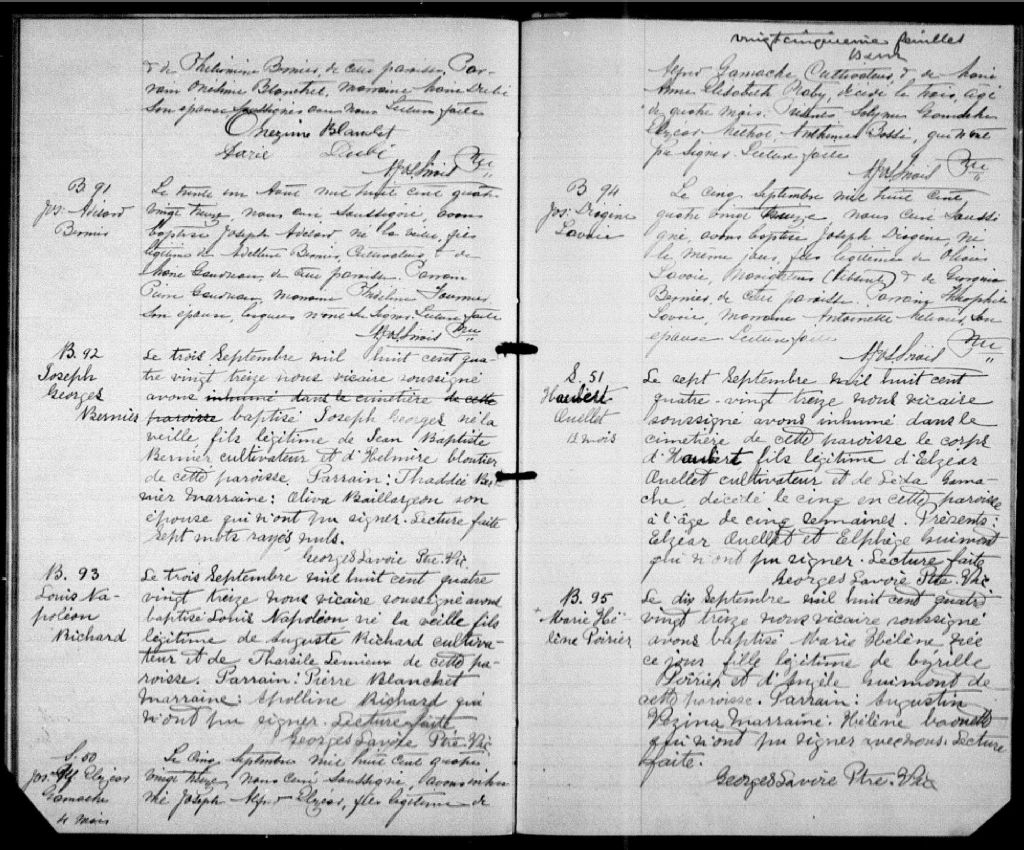 & de Philomène Bernier, de cette paroisse. Par-
rain Onésime Blanchet, Marraine Marie Dubé
son épouse soussignés avec nous Lecture faite
Onezime Blanchet
Marie Dubé
B 91
Jos: Adélard
Bernier
Le trente un Août mil huit cent quatre
vingt treize, nous curé soussigné, avons
baptisé Joseph Adélard né la veille, fils
légitime de Bernier, Cultivateur & de
Marie Gaudreau, de cette paroisse Parrain
Pierre Gaudreau, Marraine Fournier
son épouse, lesquels n'ont su signer. Lecture faite
B. 92
Joseph
Georges
Bernier
Le trois Septembre mil huit cent qua-
tre vingt treize nous vicaire soussigné
avons inhumé dans le cimetière de cette
paroisse baptisé Joseph Georges né la
veille, fils légitime de Jean Baptiste
Bernier cultivateur et d'Helmire Cloutier
de cette paroisse. Parrain: Thaddée Ber-
nier Marraine: Oliva Baillargeon son
épouse qui n'ont pu signer. Lecture faite
Sept mots rayés, nuls.
Georges Lavoie Ptre. Vic
B. 93
Louis Na-
poléon
Richard
Le trois Septembre mil huit cent quatre
vingt treize nous vicaire soussigné avons
baptisé Louis Napoléon né la veille fils
légitime de Auguste Richard cultiva-
teur et de Tharsile Lemieux de cette pa-
roisse. Parrain: Pierre Blanchet
Marraine: Apolline Richard qui
n'ont pu signer. Lecture faite
Georges Lavoie Ptre. Vic
S. 50
Jos. Alf Elzéar
Gamache
4 mois
Le Cinq Septembre mil huit cent quatre
vingt treize, nous Curé soussigné, avons inhu-
mé Joseph Alfred Elzéar, fils légitime de
vingt cinquieme feuillet
Alfred Gamache, Cultivateur & de Marie
Anne Elisabeth Roby, décédé le trois, agé
de quatre mois. Présents Gamache
Elzéar Methot, Anthime Bossé, qui n'ont
pu signer. Lecture faite
B 94
Jos: Diogène
Lavoie
Le Cinq Septembre mil huit cent
quatre vingt treize, nous Curé soussi
gné, avons baptisé Joseph Diogène, né
le même jour, fils légitime de
Lavoie, Navigateur (absent) & de Georgina
Bernier, de cette paroisse. Parrain Théophile
Lavoie, Marraine Antoinette son
épouse Lecture faite
S. 51
Haubert
Ouellet
Le sept Septembre mil huit cent
quatre-vingt treize nous vicaire
soussigné avons inhumé dans le
cimetière de cette paroisse le corps
d'Haubert fils légitime d'Elzéar
Ouellet cultivateur et de Léda Gama-
che, décédé le cinq en cette paroisse
à l'âge de cinq semaines. Présents:
Elzéar Ouellet et Elphège Guimont
qui n'ont pu signer. Lecture faite
Georges Lavoie Ptre. Vic
B. 95
Marie Hé-
lène Poirier
Le dix Septembre mil huit cent quatre
vingt treize nous vicaire soussigné
avons baptisé Marie Hélène née
ce jour fille légitime de Cyrille
Poirier et d'Angèle Guimont de
cette paroisse. Parrain: Augustin
Vézina Marraine: Hélène
qui n'ont pu signer avec nous. Lecture
faite.
Georges Lavoie Ptre. Vic